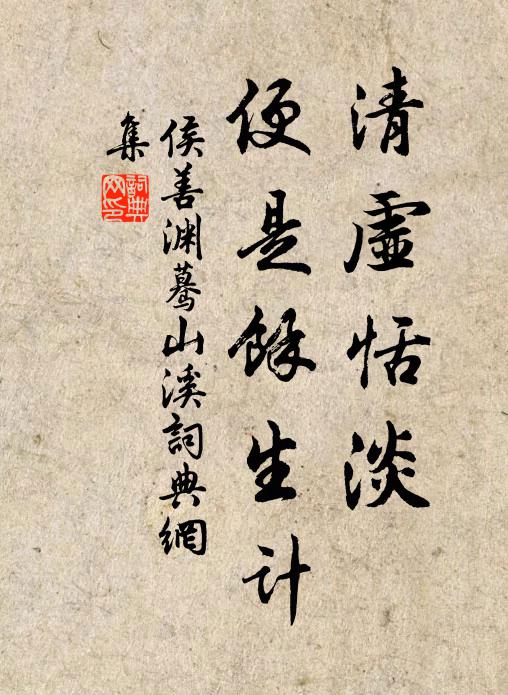 清虛恬淡
便是餘生計
侯善渊蓦山溪詞典網
集
詞典
网印